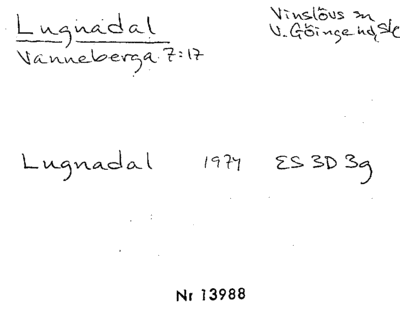 Lugnadal
Vinslövs sn
Vanneberga 7:17
V. Göinge hd, Sk
Lugnadal 1974 ES 3D 3g
Nr 13988